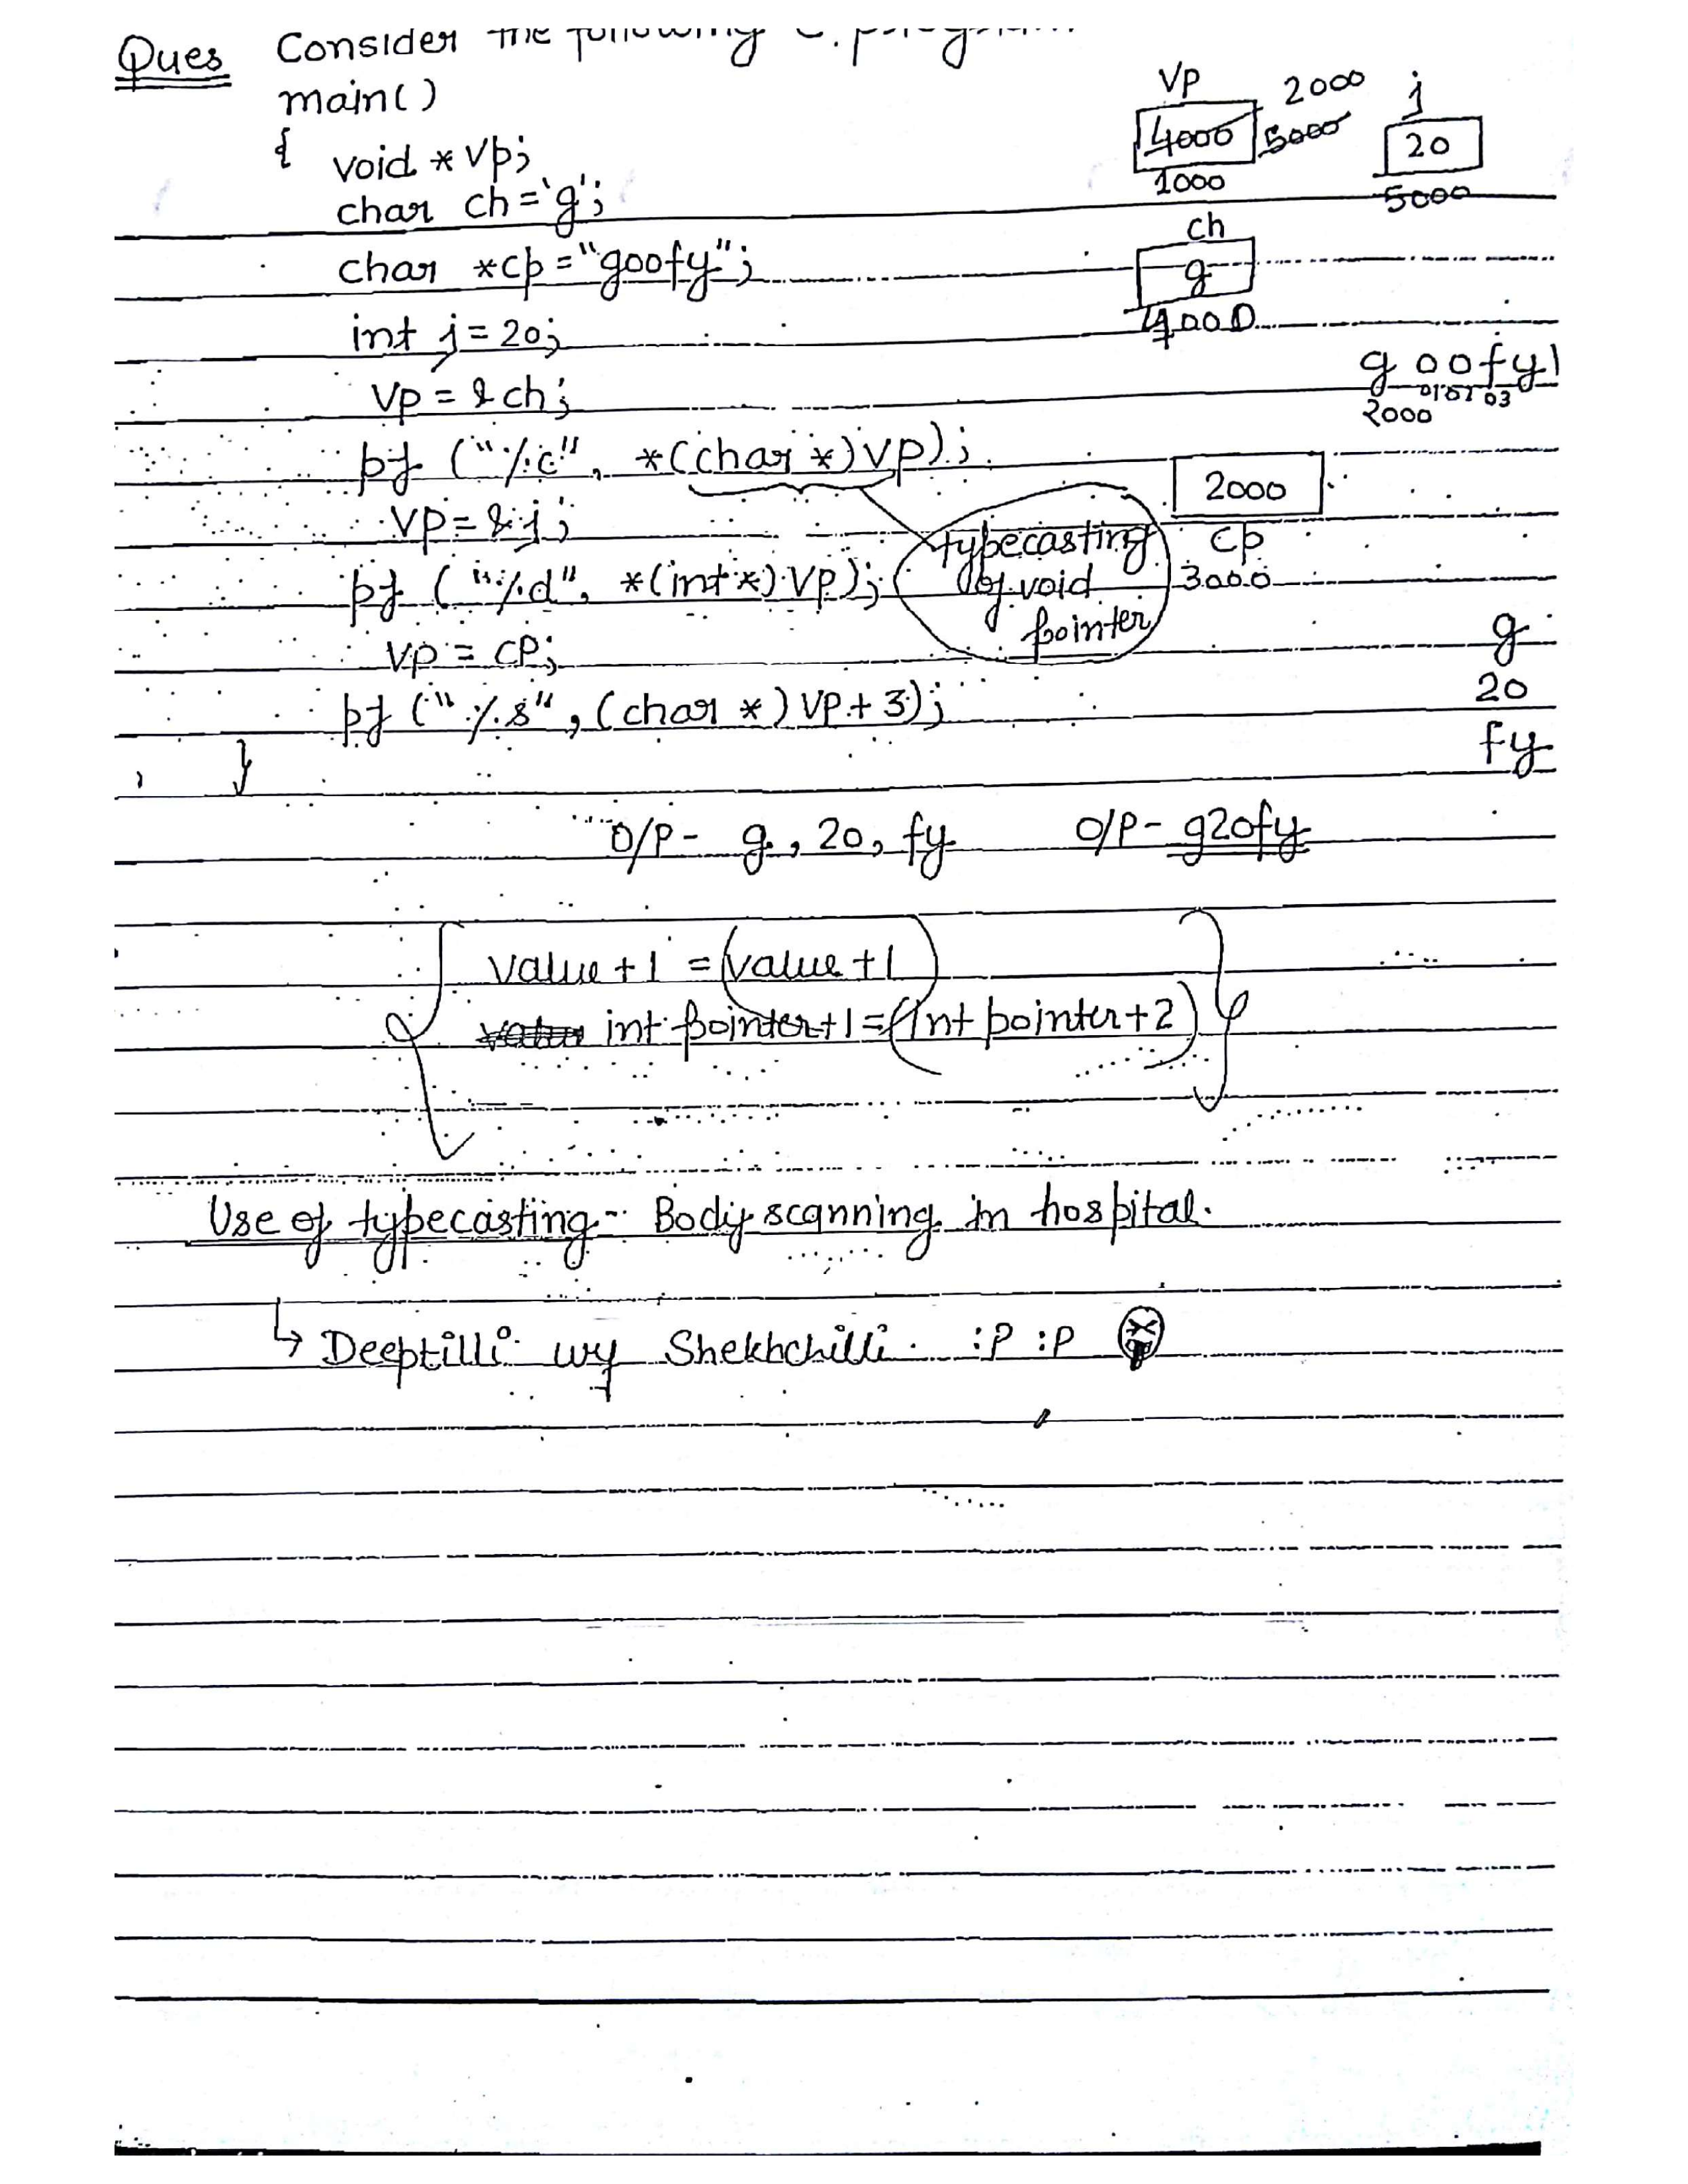 Ques Consider the following C. program
main()
{ void *vp;
char ch='g';
char *cp="goofy";
int j=20;
vp=&ch;
pf ("%c", *(char *)vp);
vp=&j;
pf ("%d", *(int *)vp);
vp=cp;
pf ("%s", (char *)vp+3);
}
vp 2000 j
4000 5000 20
1000 5000
ch
g
4000
goofy
01 02 03
2000
2000
cp
3000
typecasting
of void
pointer
g
20
fy
O/P- g, 20, fy O/P- g20fy
value+1 = value+1
int pointer+1=(int pointer+2)
Use of typecasting- Body scanning in hospital.
↳ Deeptilli wy Shekhchilli. :P :P